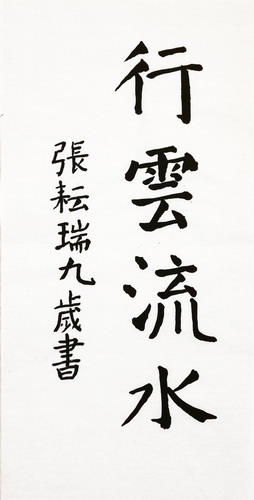 行雲流水
張耘瑞九歲書